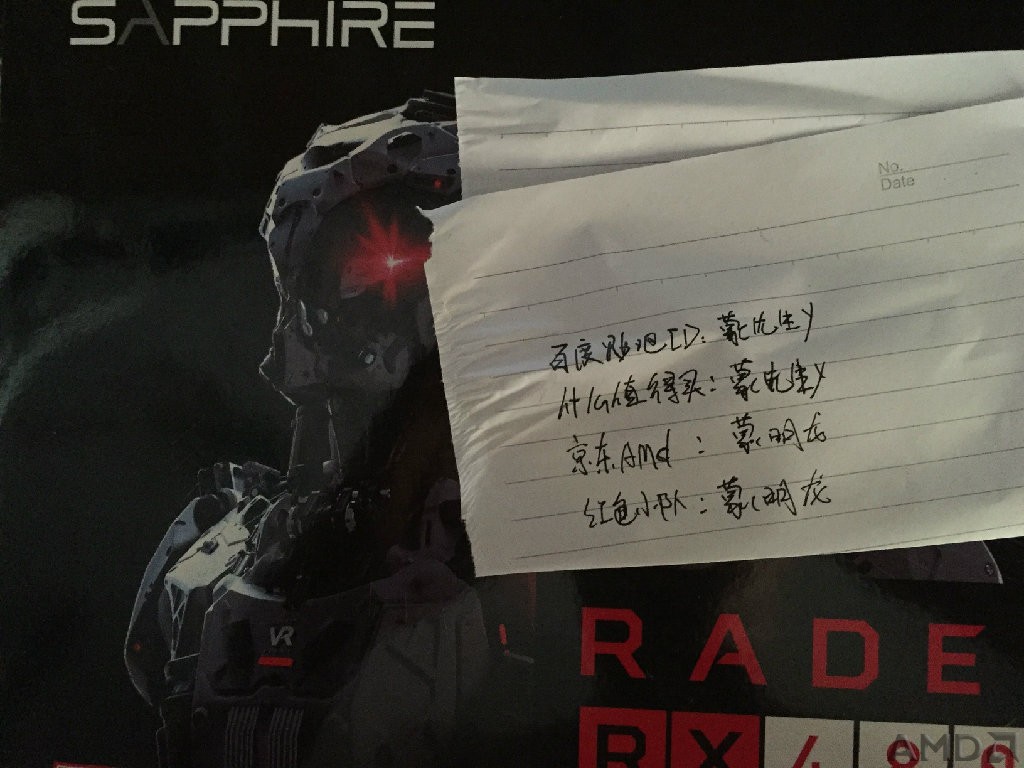 SAPPHIRE
No.
Date
百度贴吧ID：蒙先生y
什么值得买：蒙先生y
京东AMd：蒙明龙
红色小队：蒙明龙
VR
RADE
RX480
AMD